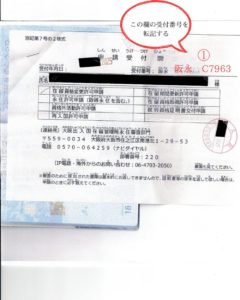 この欄の受付番号を
転記する
別記第7号の2様式
申請受付票
①
阪永 C7963
受付年月日
受付番号
在留資格変更許可申請
在留期間更新許可申請
永住許可申請
在留資格取得許可申請
資格外活動許可申請
再入国許可申請
就労資格証明書交付申請
(連絡先) 大阪出入国在留管理局永住審査部門
〒559-0034 大阪府大阪市住之江区南港北1-29-53
電話 0570-064259 (ナビダイヤル)
部署番号:220
(IP電話・海外からのお問い合わせ:06-4703-2050)
裏面も見てください。